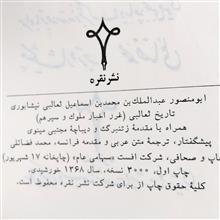 نشر نقره
ابومنصور عبدالملک بن محمد بن اسماعیل ثعالبی نیشابوری
تاریخ ثعالبی (غرر اخبار ملوک و سیرهم)
همراه با مقدمهٔ زتنبرگ و دیباچهٔ مجتبی مینوی
پیشگفتار، ترجمهٔ متن عربی و مقدمه فرانسه، محمد فضائلی
چاپ و صحافی، شرکت افست (سهامی عام) (چاپخانه ۱۷ شهریور)
چاپ اول، ۳۰۰۰ نسخه، سال ۱۳۶۸ خورشیدی.
کلیهٔ حقوق چاپ از برای شرکت نشر نقره محفوظ است.